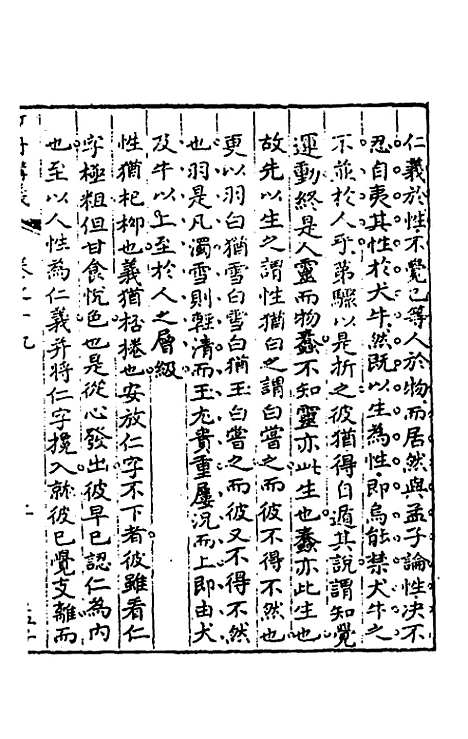 仁義於性不覺已等人於物而居然與孟子論性决不
忍自夷其性於犬牛然既以生為性即烏能禁犬牛之
不並於人乎第驟以是折之彼猶得自遁其說謂知覺
運動終是人靈而物蠢不知靈亦此生也蠢亦此生也
故先以生之謂性猶白之謂白嘗之而彼不得不然也
更以羽白猶雪白雪白猶玉白嘗之而彼又不得不然
也羽是凡濁雪則輕清而玉尤貴重屢況而上即由犬
及牛以上至於人之層級
性猶杞柳也義猶桮棬也安放仁字不下者彼雖看仁
字極粗但甘食悅色也是從心發出彼早已認仁為内
也至以人性為仁義并將仁字攪入就彼已覺支離而
卷之十九